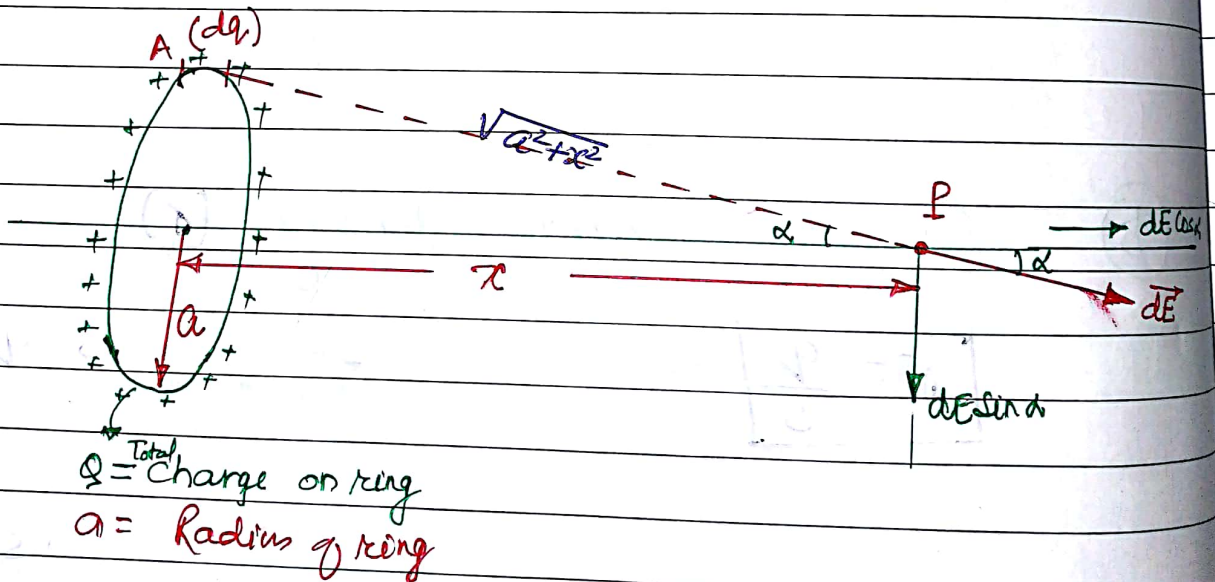 A (dq)
√a²+x²
P
α
dE cosα
α
x
dE
a
dE sin α
Q = Total Charge on ring
a = Radius of ring